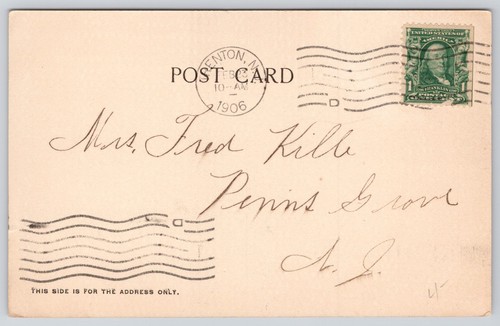 POST CARD
10-AM
1906
UNITED STATES OF
AMERICA
1 1
Mrs. Fred Kille
Penns Grove
N. J.
THIS SIDE IS FOR THE ADDRESS ONLY.